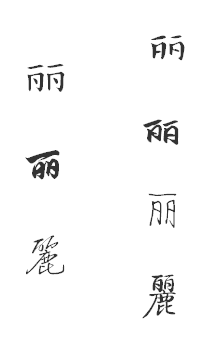 丽
丽
麗
丽
丽
丽
麗